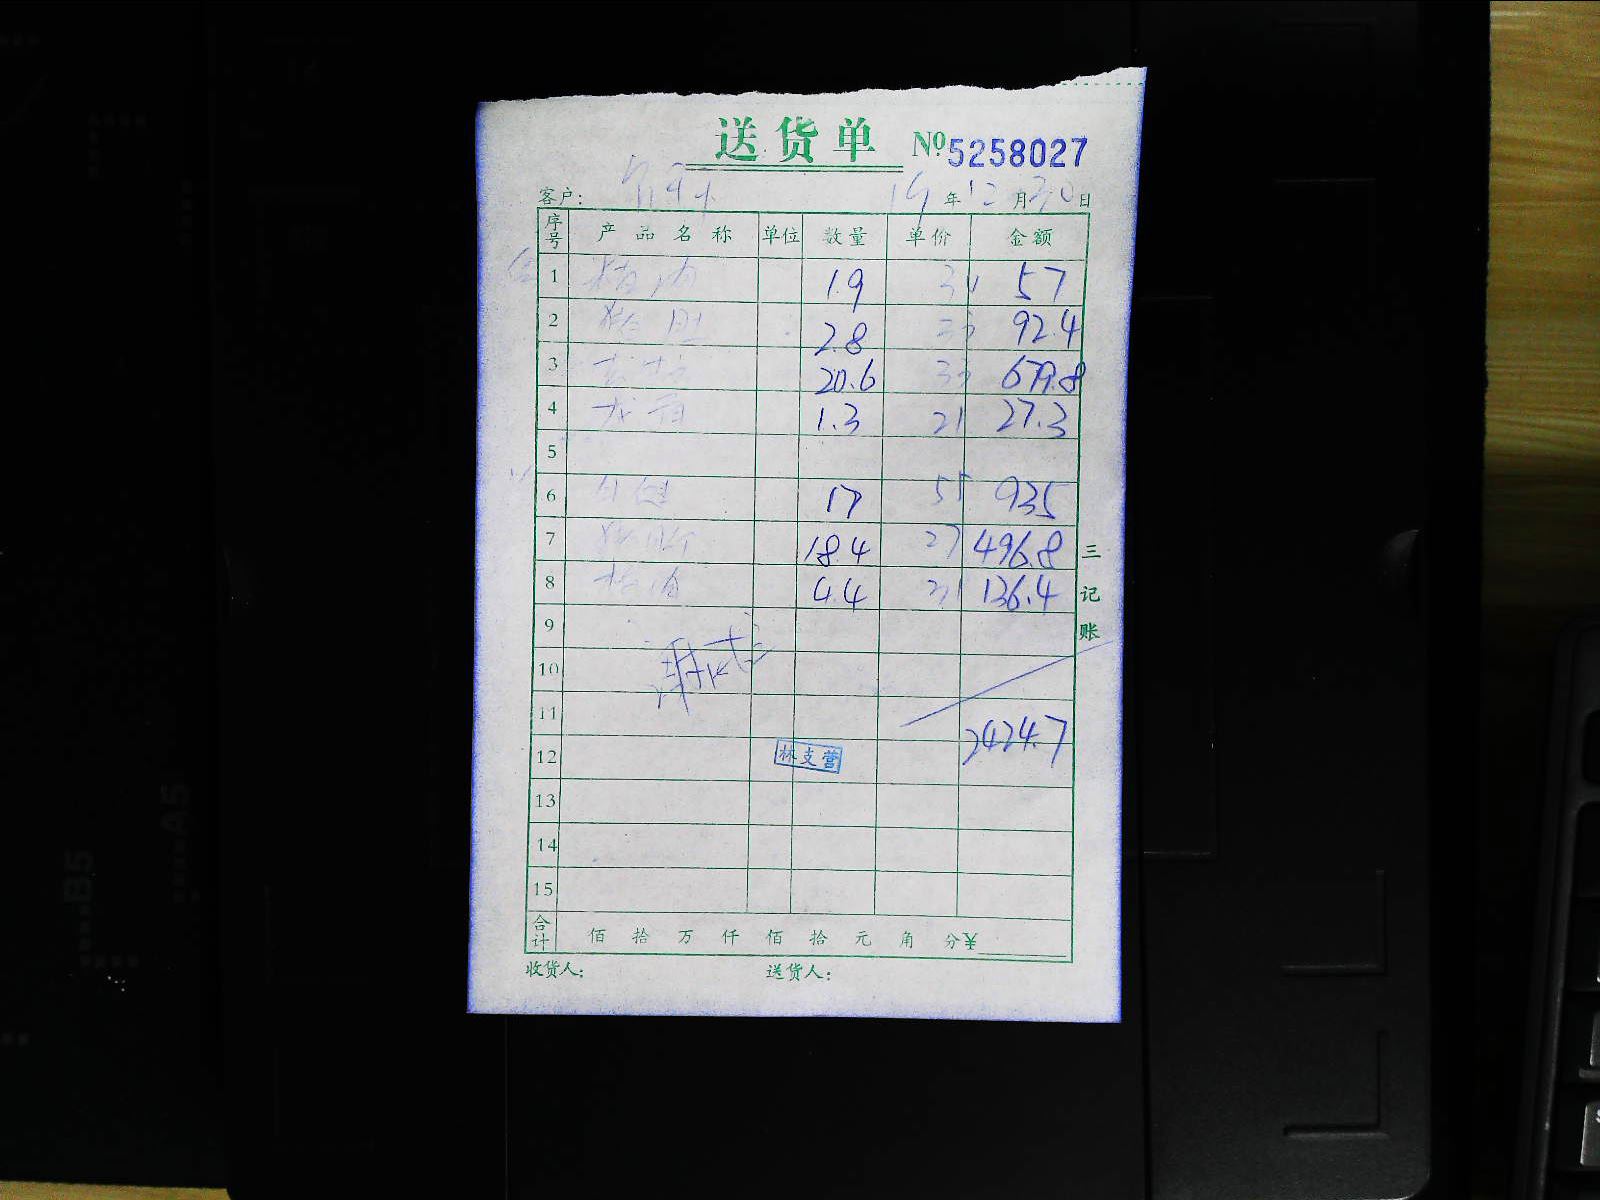 送货单 №5258027
客户: 19年12月30日
序号 产品名称 单位 数量 单价 金额
1 精肉 1.9 30 57
2 2.8 33 92.4
3 20.6 33 679.8
4 龙骨 1.3 21 27.3
5
6 17 55 935
7 18.4 27 496.8
8 4.4 31 136.4
9
10
11
2424.7
12 林支营
13
14
15
合计 佰 拾 万 仟 佰 拾 元 角 分¥
收货人: 送货人:
三记账
B5
A5